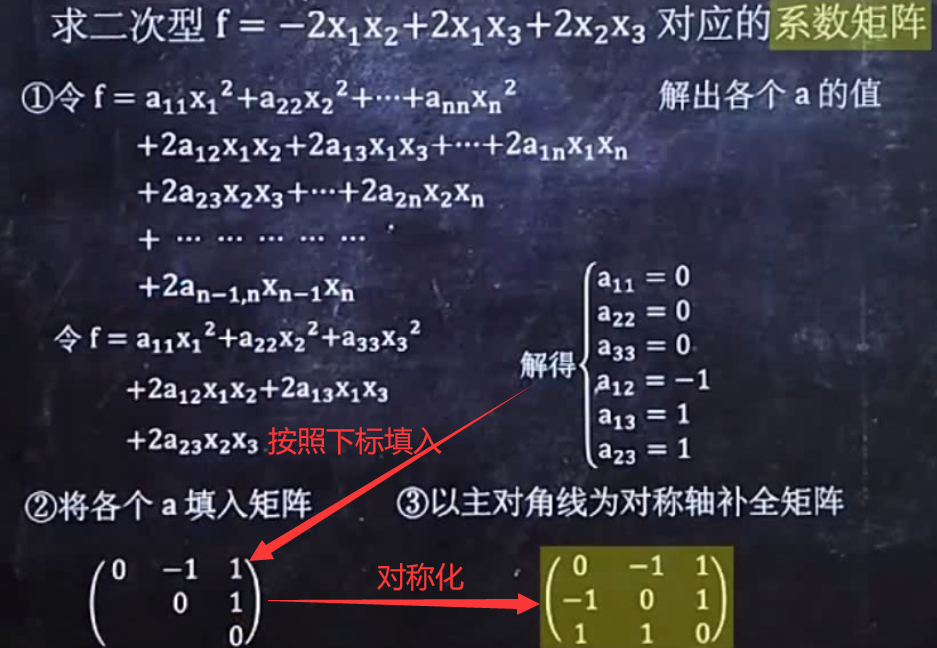 求二次型 f = −2x₁x₂+2x₁x₃+2x₂x₃ 对应的系数矩阵
①令 f = a₁₁x₁²+a₂₂x₂²+⋯+aₙₙxₙ² 解出各个 a 的值
+2a₁₂x₁x₂+2a₁₃x₁x₃+⋯+2a₁ₙx₁xₙ
+2a₂₃x₂x₃+⋯+2a₂ₙx₂xₙ
+ ⋯ ⋯ ⋯ ⋯ ⋯
+2aₙ₋₁,ₙxₙ₋₁xₙ
令 f = a₁₁x₁²+a₂₂x₂²+a₃₃x₃²
+2a₁₂x₁x₂+2a₁₃x₁x₃
+2a₂₃x₂x₃ 按照下标填入
解得
a₁₁ = 0
a₂₂ = 0
a₃₃ = 0
a₁₂ = −1
a₁₃ = 1
a₂₃ = 1
②将各个 a 填入矩阵
③以主对角线为对称轴补全矩阵
0 −1 1
0 1
0
对称化
0 −1 1
−1 0 1
1 1 0